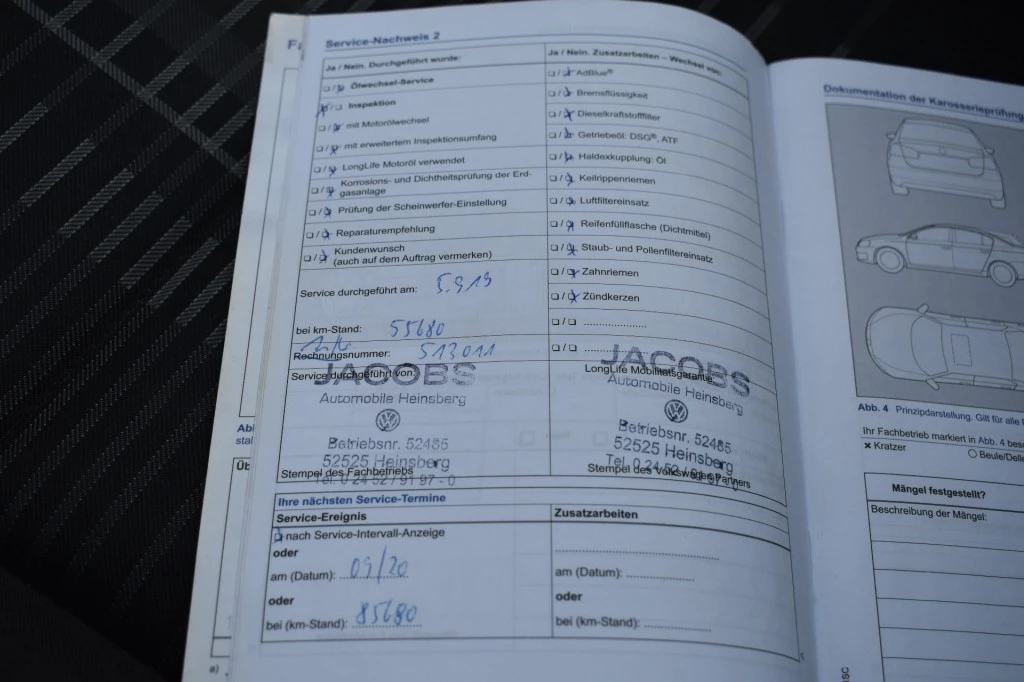 Service-Nachweis 2
Ja / Nein. Durchgeführt wurde:
Ölwechsel-Service
Inspektion
mit Motorölwechsel
mit erweitertem Inspektionsumfang
LongLife Motoröl verwendet
Korrosions- und Dichtheitsprüfung der Erd-
gasanlage
Prüfung der Scheinwerfer-Einstellung
Reparaturempfehlung
Kundenwunsch
(auch auf dem Auftrag vermerken)
Service durchgeführt am: 5.9.19
bei km-Stand: 55680
Rechnungsnummer: 513011
Service durchgeführt von:
JACOBS
Automobile Heinsberg
Betriebsnr. 52485
52525 Heinsberg
Tel. 0 24 52 / 91 97 - 0
Stempel des Fachbetriebs
Ja / Nein. Zusatzarbeiten – Wechsel von:
AdBlue®
Bremsflüssigkeit
Dieselkraftstofffilter
Getriebeöl: DSG®, ATF
Haldexkupplung: Öl
Keilrippenriemen
Luftfiltereinsatz
Reifenfüllflasche (Dichtmittel)
Staub- und Pollenfiltereinsatz
Zahnriemen
Zündkerzen
JACOBS
LongLife Mobilitätsgarantie
Automobile Heinsberg
Betriebsnr. 52485
52525 Heinsberg
Tel. 0 24 52 / 91 97 - 0
Stempel des Volkswagen Partners
Ihre nächsten Service-Termine
Service-Ereignis
nach Service-Intervall-Anzeige
oder
am (Datum): 09/20
oder
bei (km-Stand): 85680
Zusatzarbeiten
am (Datum):
oder
bei (km-Stand):
a)
Dokumentation der Karosserieprüfung
Abb. 4 Prinzipdarstellung. Gilt für alle
Ihr Fachbetrieb markiert in Abb. 4
× Kratzer
Beule/Delle
Mängel festgestellt?
Beschreibung der Mängel: